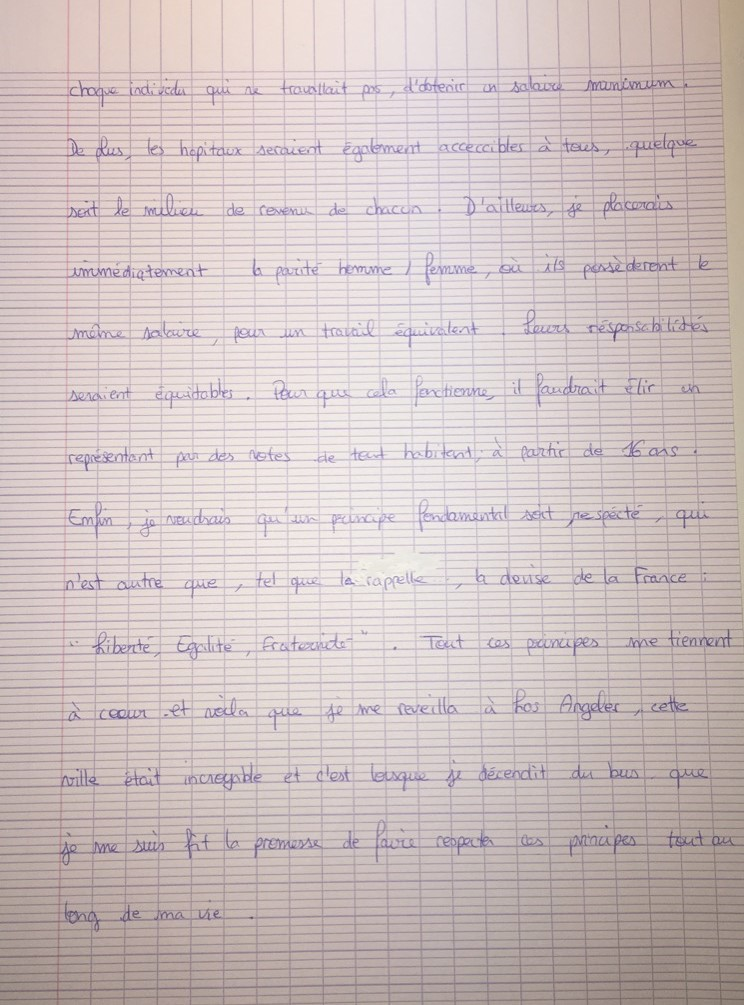 chaque individu qui ne travallait pas, d'obtenir un salaire manimum.
De plus, les hopitaux seraient également acceccibles à tous, quelque
soit le milieu de revenu de chacun. D'ailleurs, je placerais
immédiatement la parité homme / femme, où ils possèderent le
même salaire, pour un travail équivalent. Leurs résponsabilités
seraient équitables. Pour que cela fonctionne, il faudrait élir un
représentant par des votes de tout habitant, à partir de 16 ans.
Enfin, je voudrais qu'un principe fondamental soit respecté, qui
n'est autre que, tel que le rappelle, la devise de la France :
"Liberté, Egalité, Fraternité". Tout ces principes me tiennent
à coeur et voila que je me reveilla à Los Angeles, cette
ville était increyable et c'est lorsque je décendit du bus que
je me suis fit la promesse de faire respecter ces principes tout au
long de ma vie.